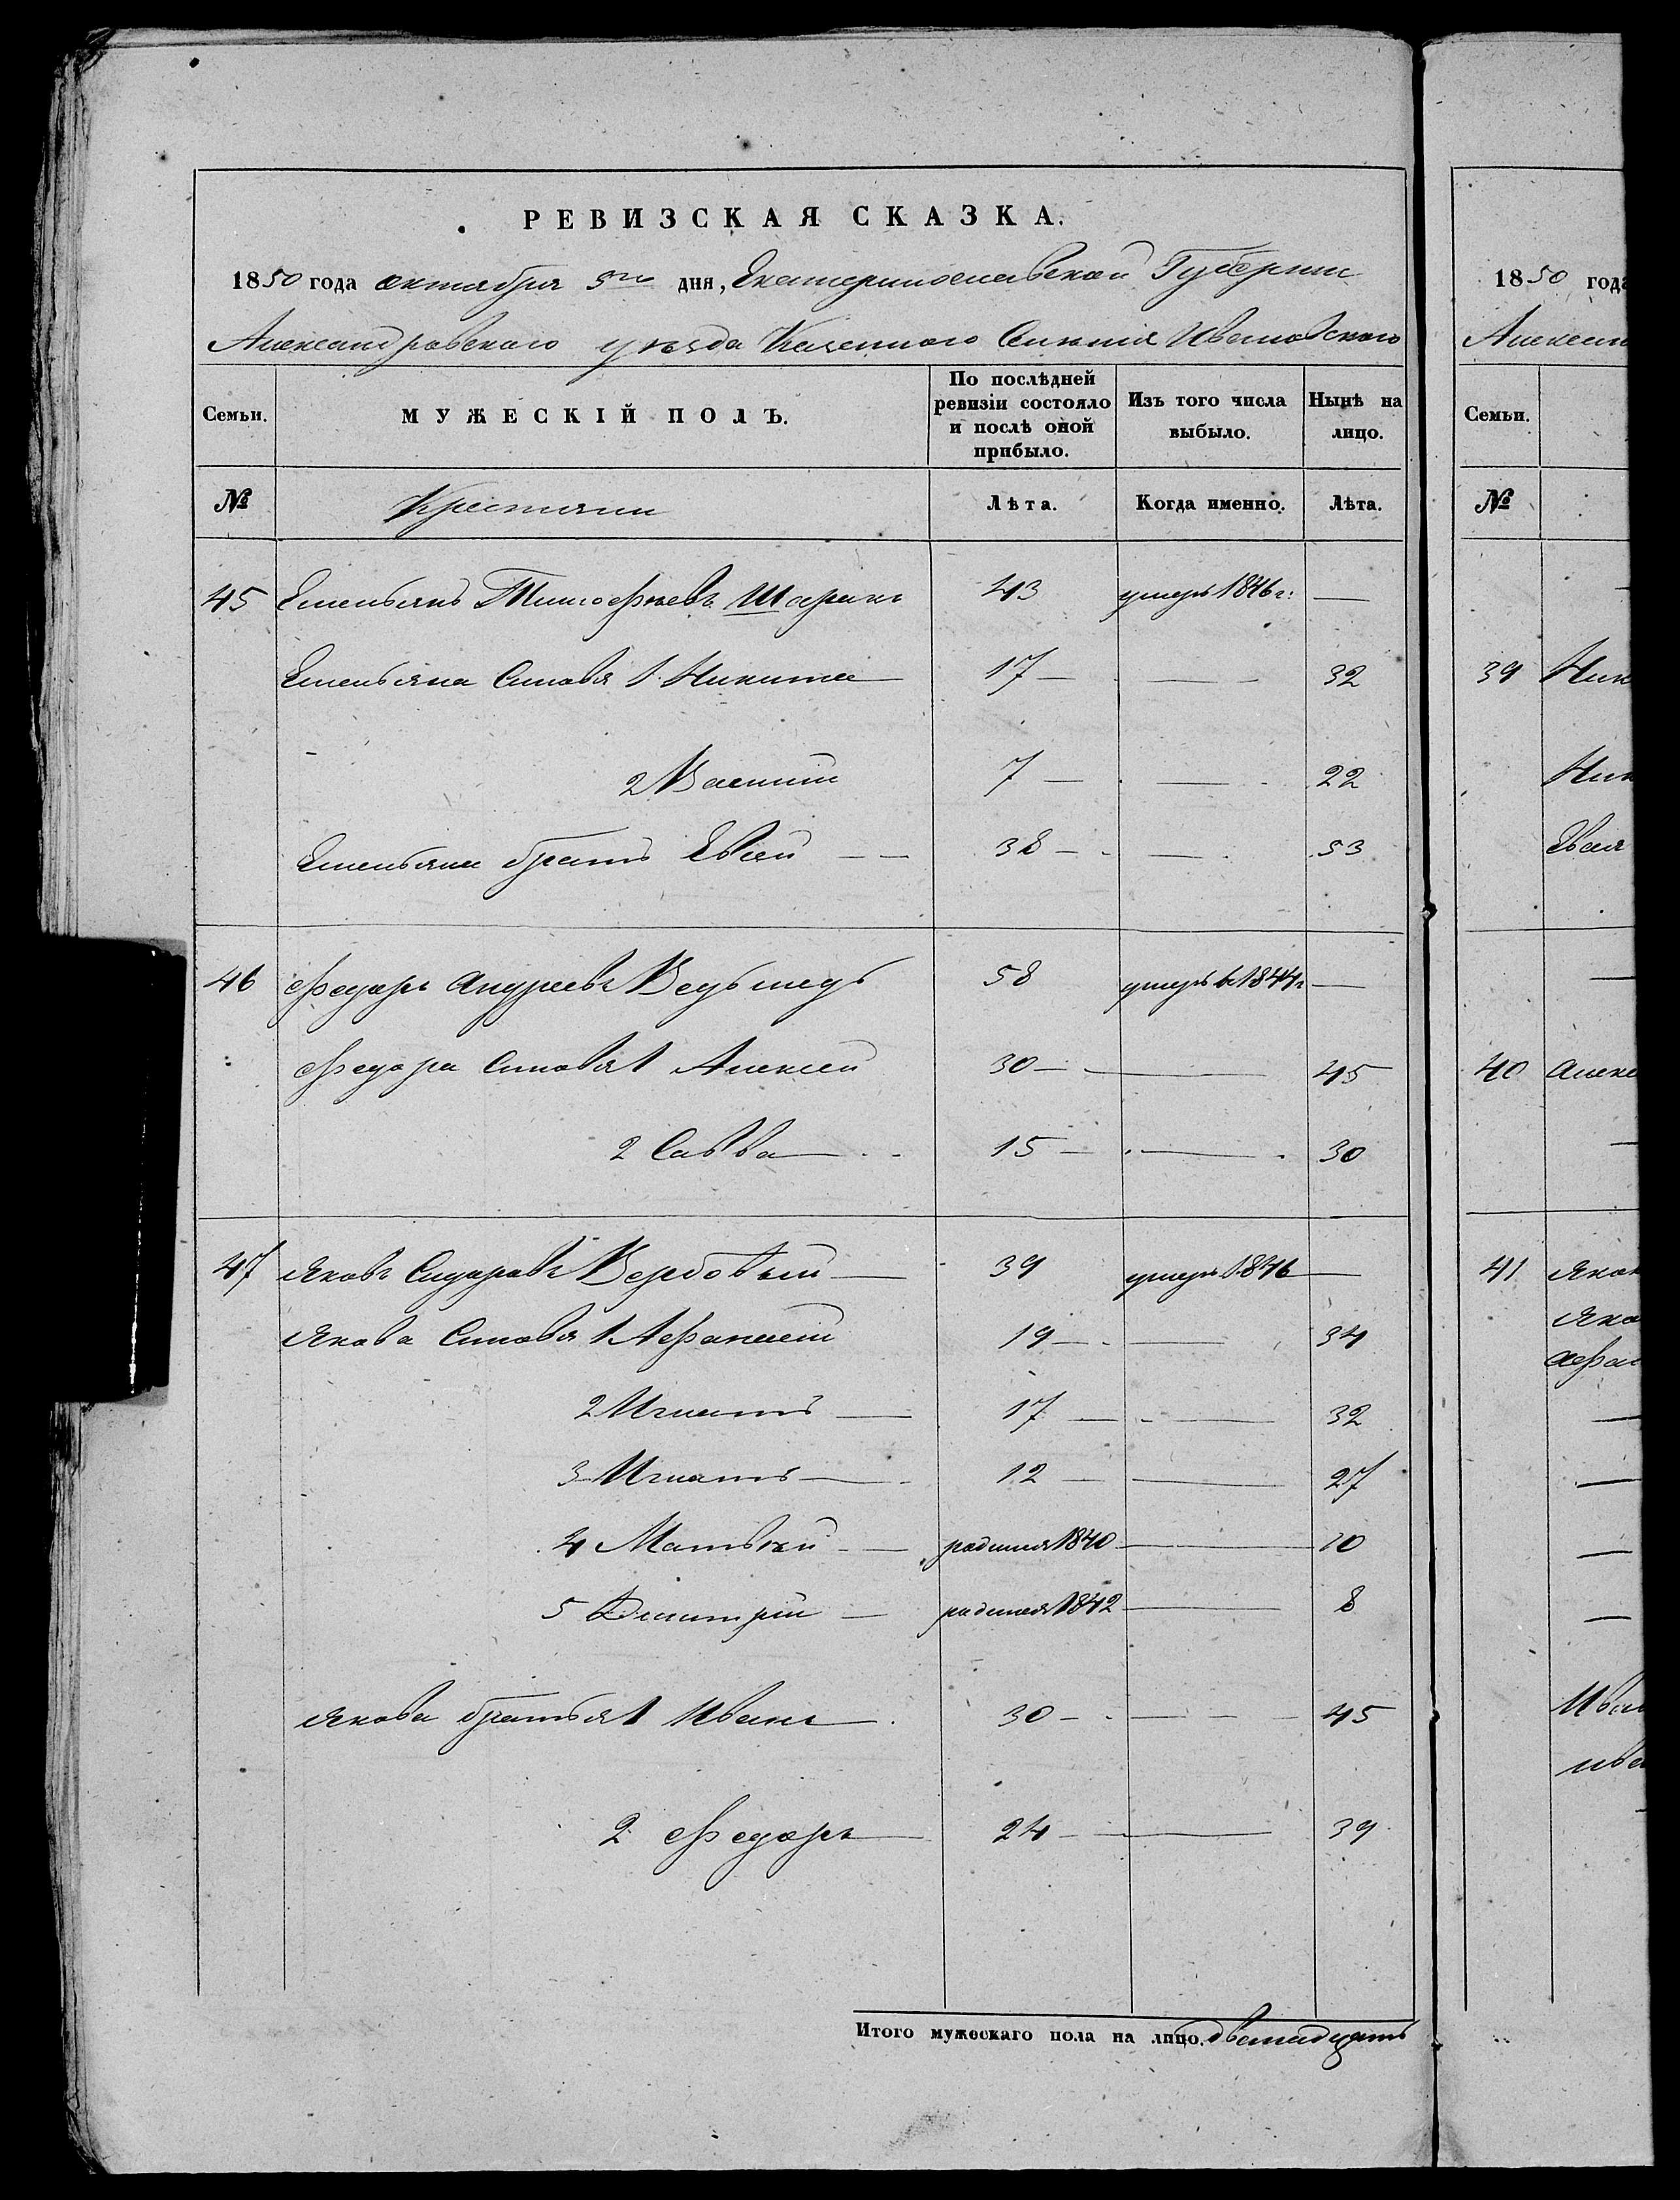 РЕВИЗСКАЯ СКАЗКА.
1850 года октября 5го дня, Екатеринославской Губернии
Александровского уѣзда Казенного Селенія Ивановского
Семьи. МУЖЕСКІЙ ПОЛЪ. По послѣдней ревизіи состояло и послѣ оной прибыло. Изъ того числа выбыло. Нынѣ на лицо.
№ Крестьяни Лѣта. Когда именно. Лѣта.
45 Емельянъ Тимофѣевъ 43 умеръ 1846 г: —
Емельяна Сыновья 1 Никита — 17 — — 32
2 Василий 7 — — 22
Емельяна братъ Евсей — — 38 — — 53
46 Федоръ Андреевъ Ведьмедь 58 умеръ в 1844 г —
Федора Сыновья 1 Алексей 30 — — 45
2 Савва — 15 — — 30
47 Яковъ Сидоровъ Вербовый — 39 умеръ 1846 —
Якова Сыновья 1 Афанасий 19 — — 34
2 Игнатъ — 17 — — 32
3 Игнатъ — 12 — — 27
4 Матвѣй — родился 1840 — 10
5 Дмитрій — родился 1842 — 8
Якова братья 1 Иванъ — 30 — — 45
2 Федоръ — 24 — — 39
Итого мужескаго пола на лицо. двенадцать
1850 года
Алексан
Семьи.
№
39 Ник
Ник
Евсея
40 Алекс
41 Яков
Яко
Афан
Иван
Ива